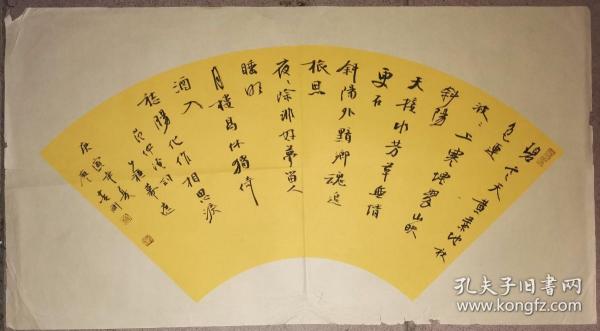 碧云天黄叶地秋
色连
波波上寒烟翠山映
斜阳
天接水芳草无情
更在
斜阳外黯乡魂追
旅思
夜夜除非好梦留人
睡明
月楼高休独倚
酒入
愁肠化作相思泪
范仲淹词苏幕遮
庚寅年夏
孔夫子旧书网
www.kongfz.com